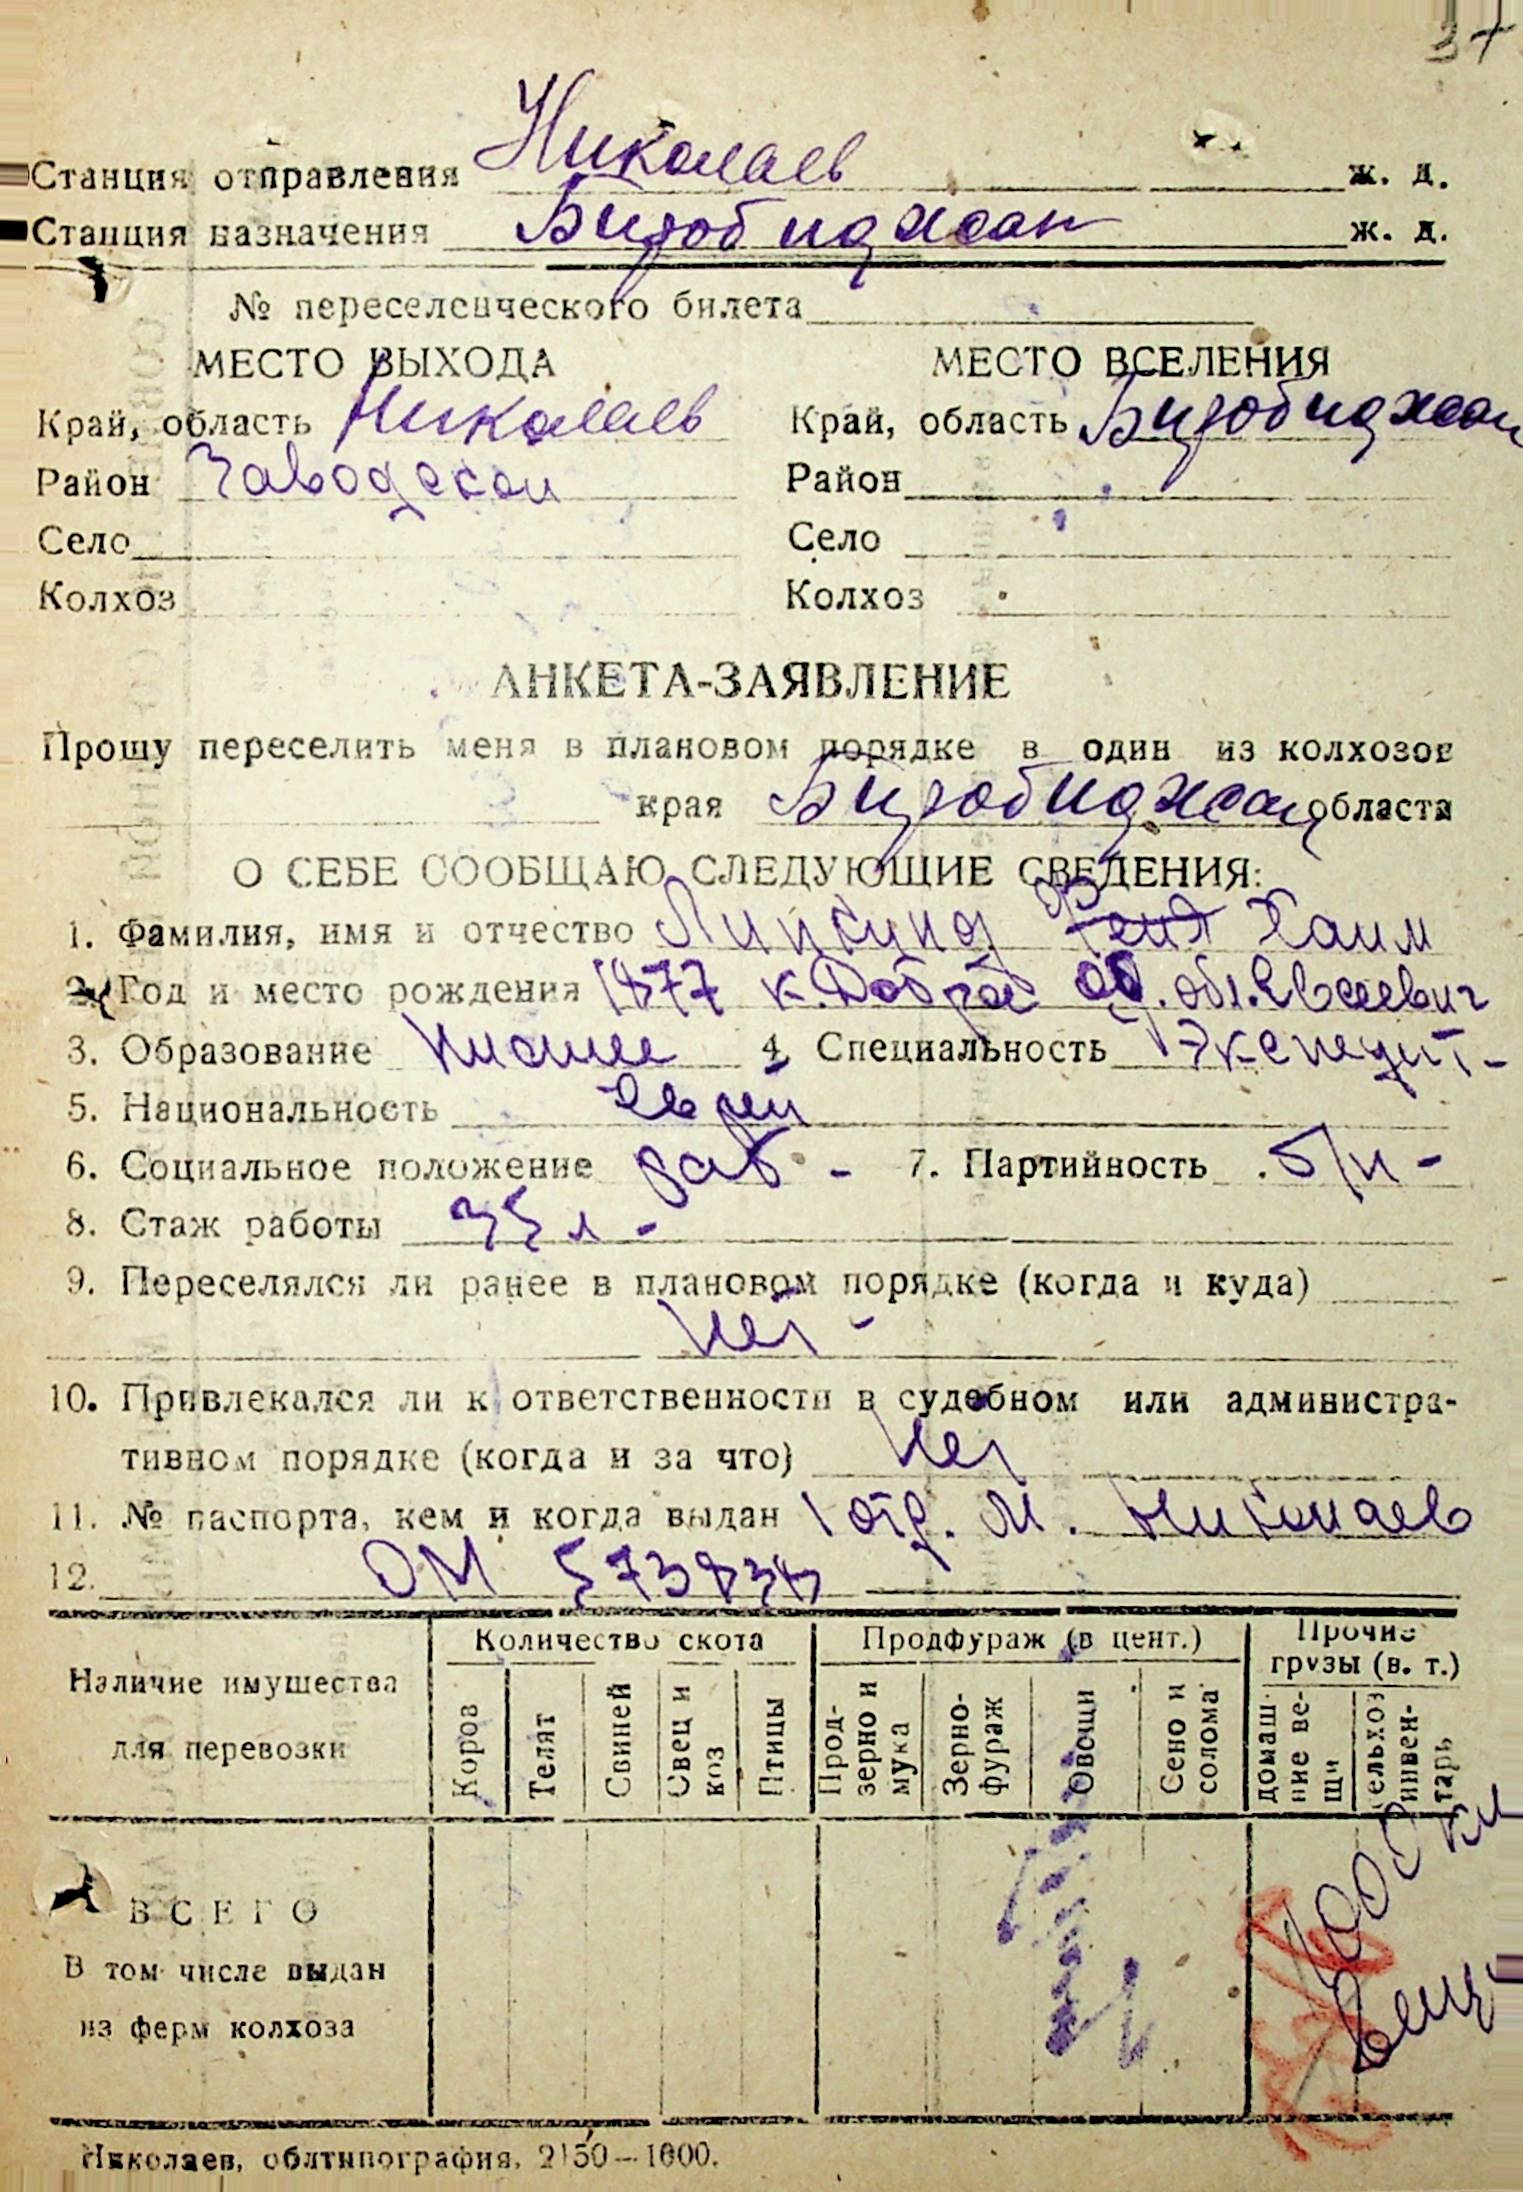 37
Станция отправления Николаев ж. д.
Станция назначения Биробиджан ж. д.
№ переселенческого билета
МЕСТО ВЫХОДА МЕСТО ВСЕЛЕНИЯ
Край, область Николаев Край, область Биробиджан
Район Заводской Район
Село Село
Колхоз Колхоз
АНКЕТА-ЗАЯВЛЕНИЕ
Прошу переселить меня в плановом порядке в один из колхозов
края Биробиджан области
О СЕБЕ СООБЩАЮ СЛЕДУЮЩИЕ СВЕДЕНИЯ:
1. Фамилия, имя и отчество Хаим
2. Год и место рождения 1877 к. Доброе Од. обл. Евсеевич
3. Образование низшее 4. Специальность Экспедит-
5. Национальность Еврей
6. Социальное положение раб - 7. Партийность б/п -
8. Стаж работы 35 л -
9. Переселялся ли ранее в плановом порядке (когда и куда)
Нет -
10. Привлекался ли к ответственности в судебном или администра-
тивном порядке (когда и за что) Нет
11. № паспорта, кем и когда выдан 1 отд. М. Николаев
12. ОМ
Наличие имущества для перевозки Количество скота Продфураж (в цент.) Прочие грузы (в. т.)
Коров Телят Свиней Свец и коз Птицы Прод-зерно и мука Зерно-фураж Овощи Сено и солома домаш-ние ве-щи сельхоз инвен-тарь
ВСЕГО 1000 кг
В том числе выдан вещи
из ферм колхоза
Николаев, облтипография, 2150—1000.